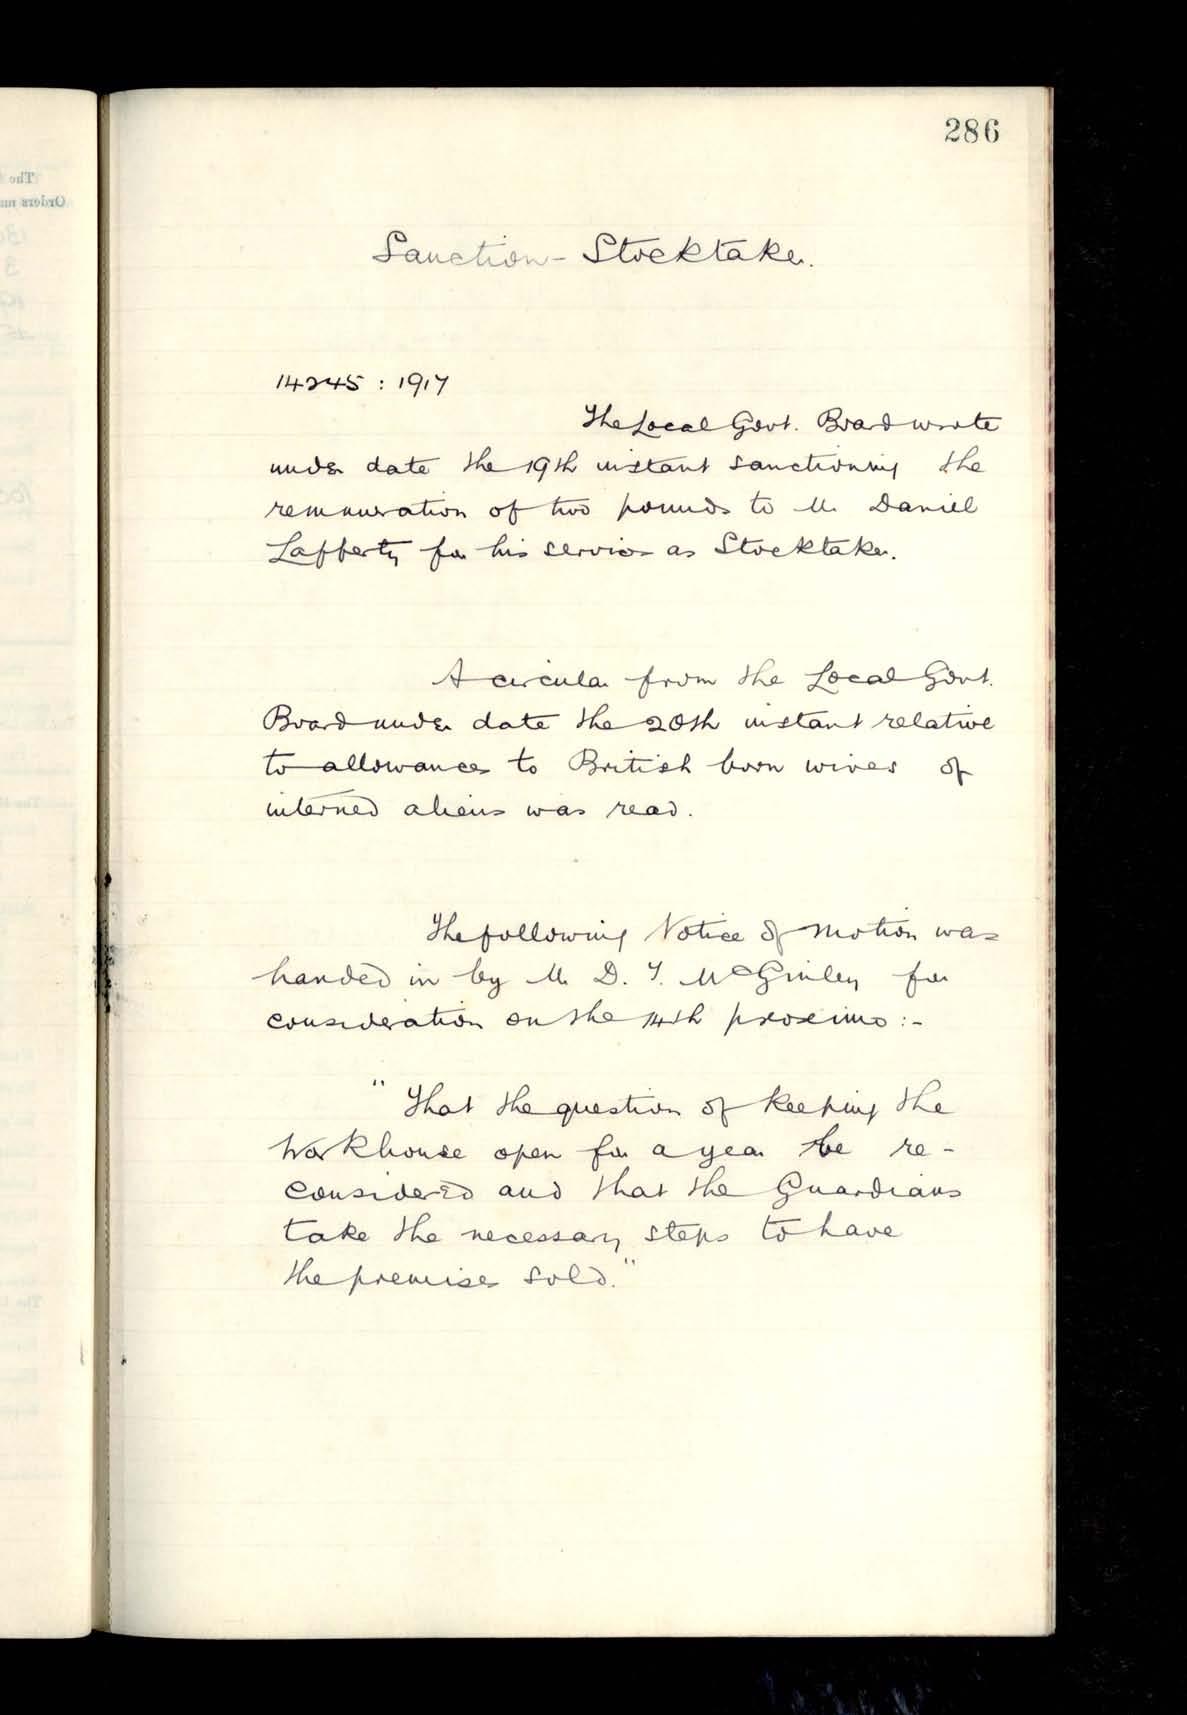 286
Sanction - Stocktaker.
14245 : 1917
The Local Govt. Board wrote
under date the 19th instant sanctioning the
remuneration of two pounds to Mr Daniel
Lafferty for his services as Stocktaker.
A circular from the Local Govt.
Board under date the 20th instant relative
to allowances to British born wives of
interned aliens was read.
The following Notice of Motion was
handed in by Mr D. T. McGinley for
consideration on the 14th proximo :-
" That the question of keeping the
Workhouse open for a year be re-
considered and that the Guardians
take the necessary steps to have
the premises sold."